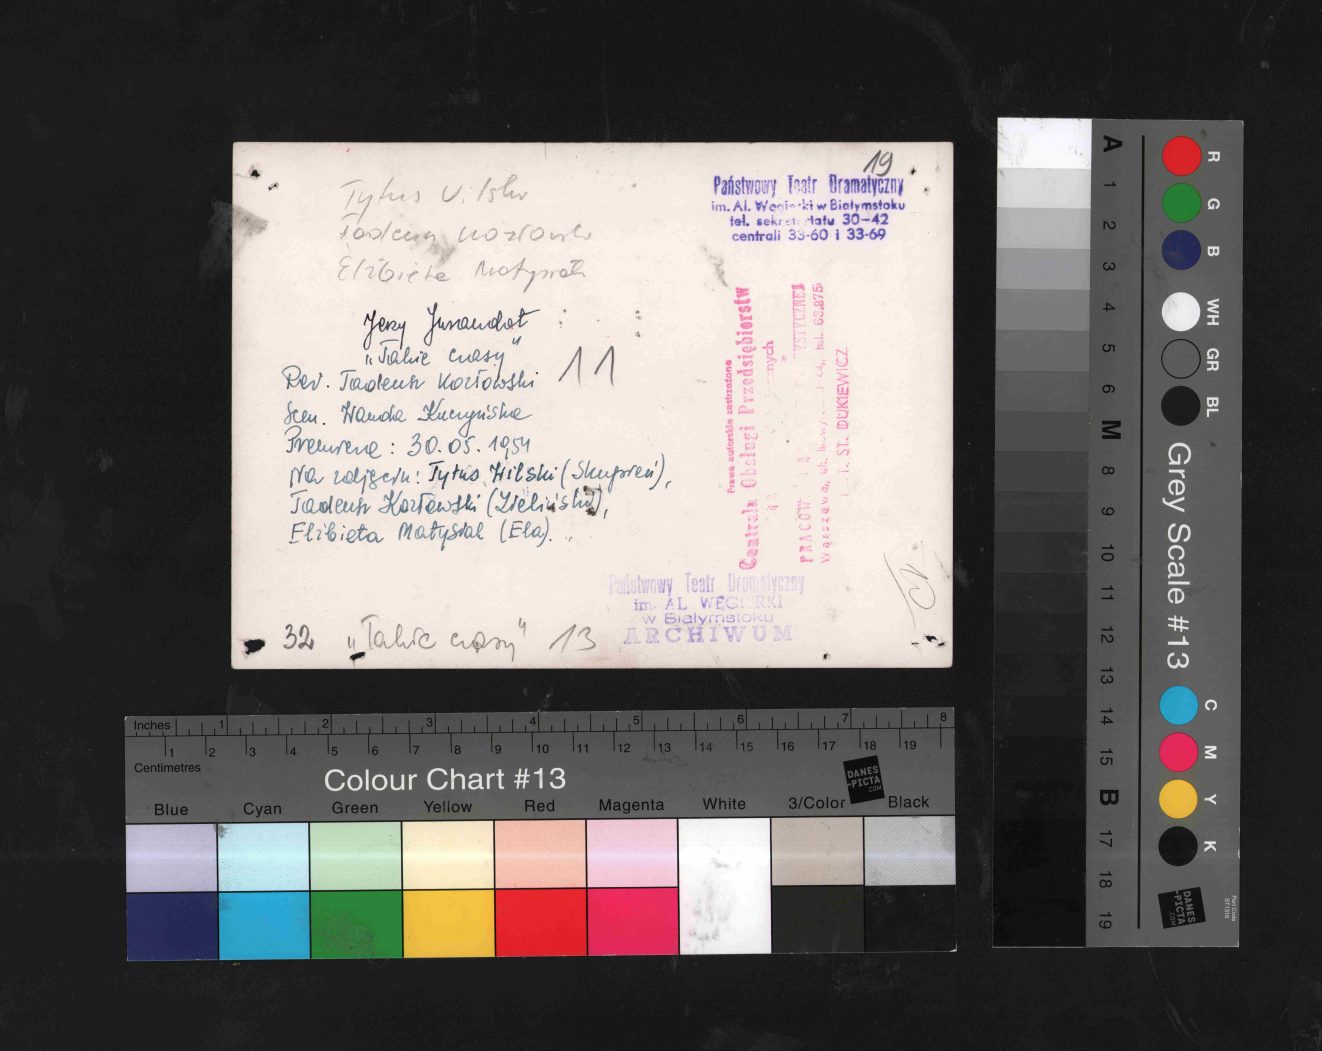 19
Państwowy Teatr Dramatyczny
im. Al. Węgierki w Białymstoku
tel. sekretariatu 30-42
centrali 33-60 i 33-69
Tytus Wilski
Tadeusz Kozłowski
Elżbieta Matysiak
Jerzy Jurandot
"Takie czasy"
11
Reż. Tadeusz Kozłowski
Scen. Wanda
Premiera: 30.05.1954
Na zdjęciu: Tytus Wilski (Skupień),
Tadeusz Kozłowski (Zieliński),
Elżbieta Matysiak (Ela).
Prawa autorskie zastrzeżone
Centrala Obsługi Przedsiębiorstw
PRACOW
Warszawa, tel. 68,875
ST. DUKIEWICZ
10
Państwowy Teatr Dramatyczny
im. AL WĘGIERKI
w Białymstoku
ARCHIWUM
32 "Takie czasy" 13
Inches 1 2 3 4 5 6 7 8
1 2 3 4 5 6 7 8 9 10 11 12 13 14 15 16 17 18 19
Centimetres
Colour Chart #13
DANES
-PICTA
.COM
Blue Cyan Green Yellow Red Magenta White 3/Color Black
A 1 2 3 4 5 6 M 8 9 10 11 12 13 14 15 B 17 18 19
R G B WH GR BL
Grey Scale #13
C M Y K
DANES
-PICTA
.COM